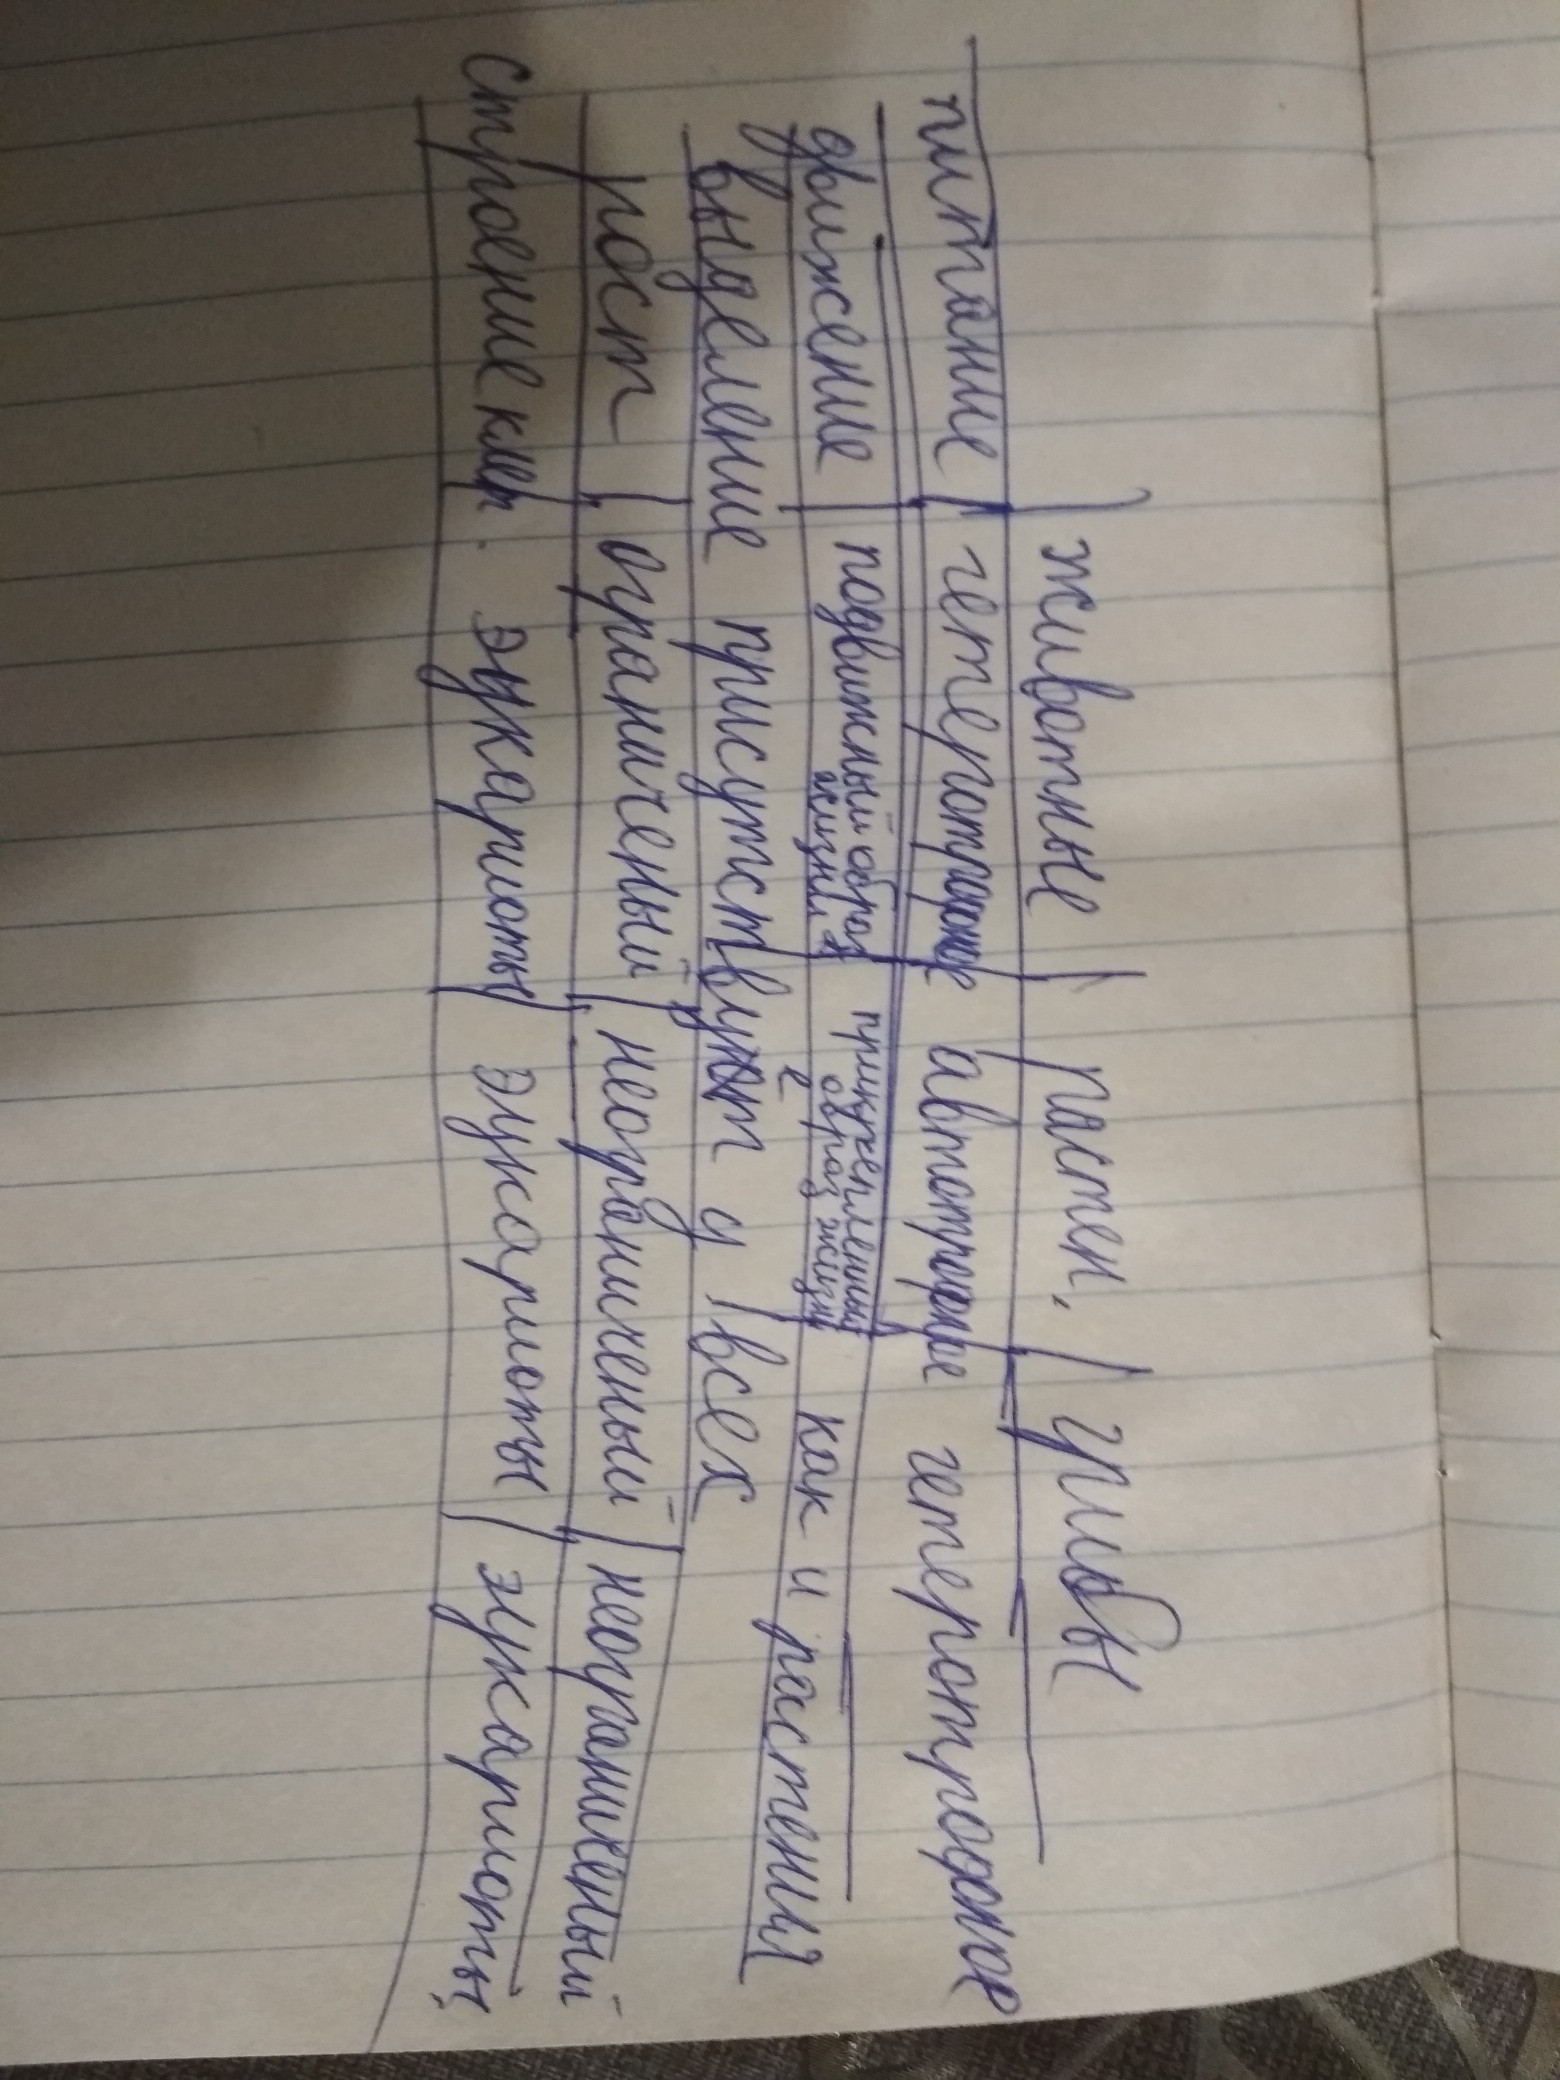 животные растен. грибы
питание гетеротрофное автотрофное гетеротрофное
движение подвижный образ жизни прикрепленный образ жизни как и растения
выделение присутствуют у всех
рост ограниченый неограниченый неограниченый
строение клет. эукариоты эукариоты эукариоты